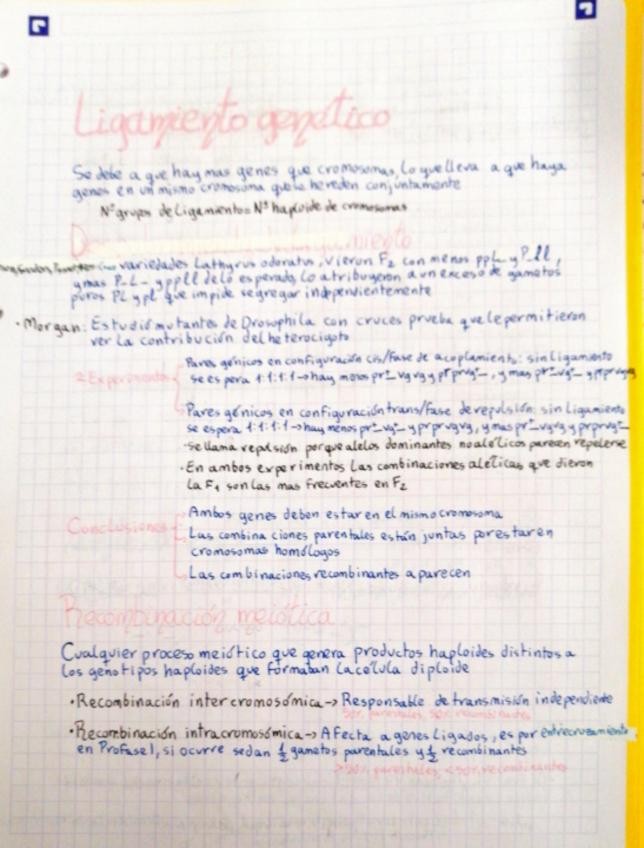 Ligamiento genético
Se debe a que hay mas genes que cromosomas, lo que lleva a que haya
genes en un mismo cromosoma que se hereden conjuntamente
Nº grupos de Ligamiento = Nº haploide de cromosomas
variedades Lathyrus odoratus, vieron F2 con menos ppL- y P-ll,
y mas P-L- y ppll de lo esperado, lo atribuyeron a un exceso de gametos
puros PL y pl que impide segregar independientemente
· Morgan: Estudió mutantes de Drosophila con cruces prueba que le permitieron
ver la contribución del heterocigoto
2 Experimentos
Pares génicos en configuración cis/fase de acoplamiento: sin Ligamiento
se espera 1:1:1:1 → hay menos pr+_ vg vg y pr pr vg+_, y mas pr+_ vg+_ y pr pr vg vg
Pares génicos en configuración trans/fase de repulsión: sin Ligamiento
se espera 1:1:1:1 → hay menos pr+_ vg+_ y pr pr vg vg, y mas pr+_ vg vg y pr pr vg+_
· se llama repulsión porque alelos dominantes no alélicos parecen repelerse
· En ambos experimentos Las combinaciones alélicas que dieron
la F1 son las mas frecuentes en F2
Conclusiones
Ambos genes deben estar en el mismo cromosoma
Las combinaciones parentales están juntas por estar en
cromosomas homólogos
Las combinaciones recombinantes aparecen
Recombinación meiótica
Cualquier proceso meiótico que genera productos haploides distintos a
los genotipos haploides que formaban la célula diploide
· Recombinación intercromosómica → Responsable de transmisión independiente
50% parentales, 50% recombinantes
· Recombinación intracromosómica → Afecta a genes ligados, es por entrecruzamiento
en Profase I, si ocurre se dan ½ gametos parentales y ½ recombinantes
>50% parentales, <50% recombinantes